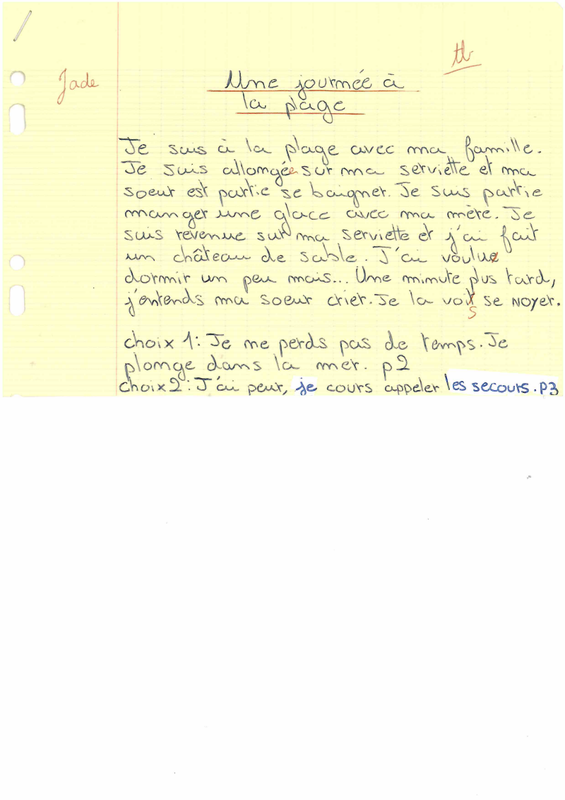 tb
Jade
Une journée à
la plage
Je suis à la plage avec ma famille.
Je suis allongée sur ma serviette et ma
soeur est partie se baigner. Je suis partie
manger une glace avec ma mère. Je
suis revenue sur ma serviette et j'ai fait
un château de sable. J'ai voulu
dormir un peu mais... Une minute plus tard,
j'entends ma soeur crier. Je la vois se noyer.
choix 1: Je ne perds pas de temps. Je
plonge dans la mer. p2
choix 2: J'ai peur, je cours appeler les secours. P3